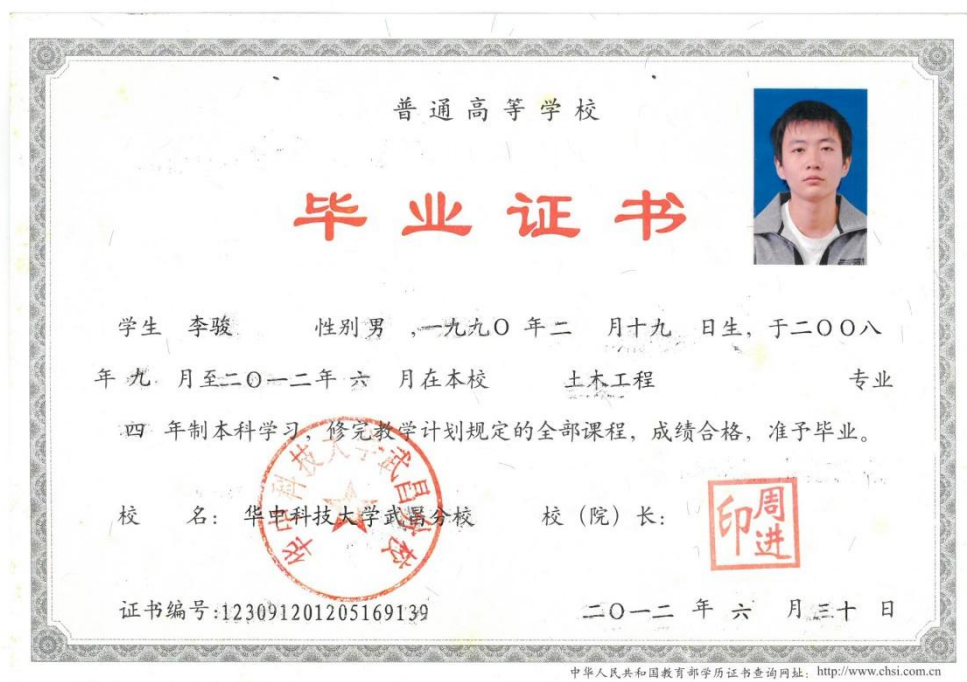 普通高等学校
毕业证书
学生 李骏 性别 男 ,一九九〇 年 二 月 十九 日生，于二〇〇八
年 九 月至二〇一二年 六 月在本校 土木工程 专业
四 年制本科学习，修完教学计划规定的全部课程，成绩合格，准予毕业。
华中科技大学武昌分校
校 名： 华中科技大学武昌分校 校（院）长：
周进印
证书编号:123091201205169139 二〇一二 年 六 月 三十 日
中华人民共和国教育部学历证书查询网址：http://www.chsi.com.cn